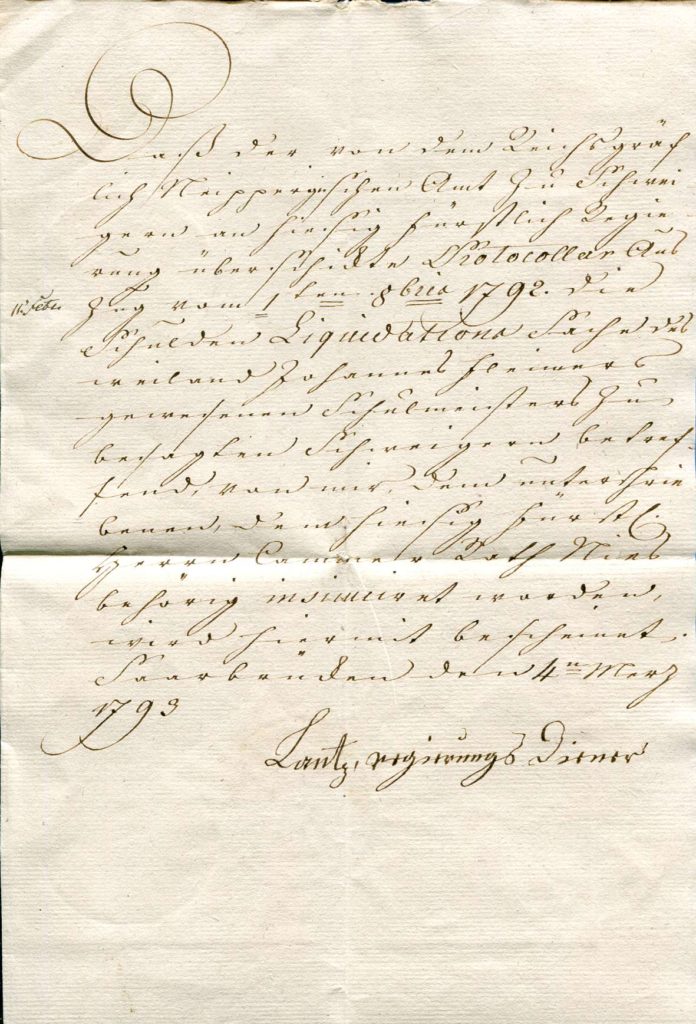 Daß der von dem Reichsgräf
lich Neippergischen Amt zu Schwei
gern an hiesig fürstlich Regie
rung überschickte Protocollar Aus
zug vom 1ten 8bris 1792. die
Schulden Liquidations Sache des
weiland Johannes Fleiners
gewesenen Schulmeisters zu
besagten Schweigern betref
fend, von mir, dem unterschrie
benen, dem hiesig fürstl.
Herrn Cammer Rath
behörig insinuiret worden,
wird hiermit bescheinet.
Saarbrücken den 4n Merz
1793
Lantz, regierungs Diener